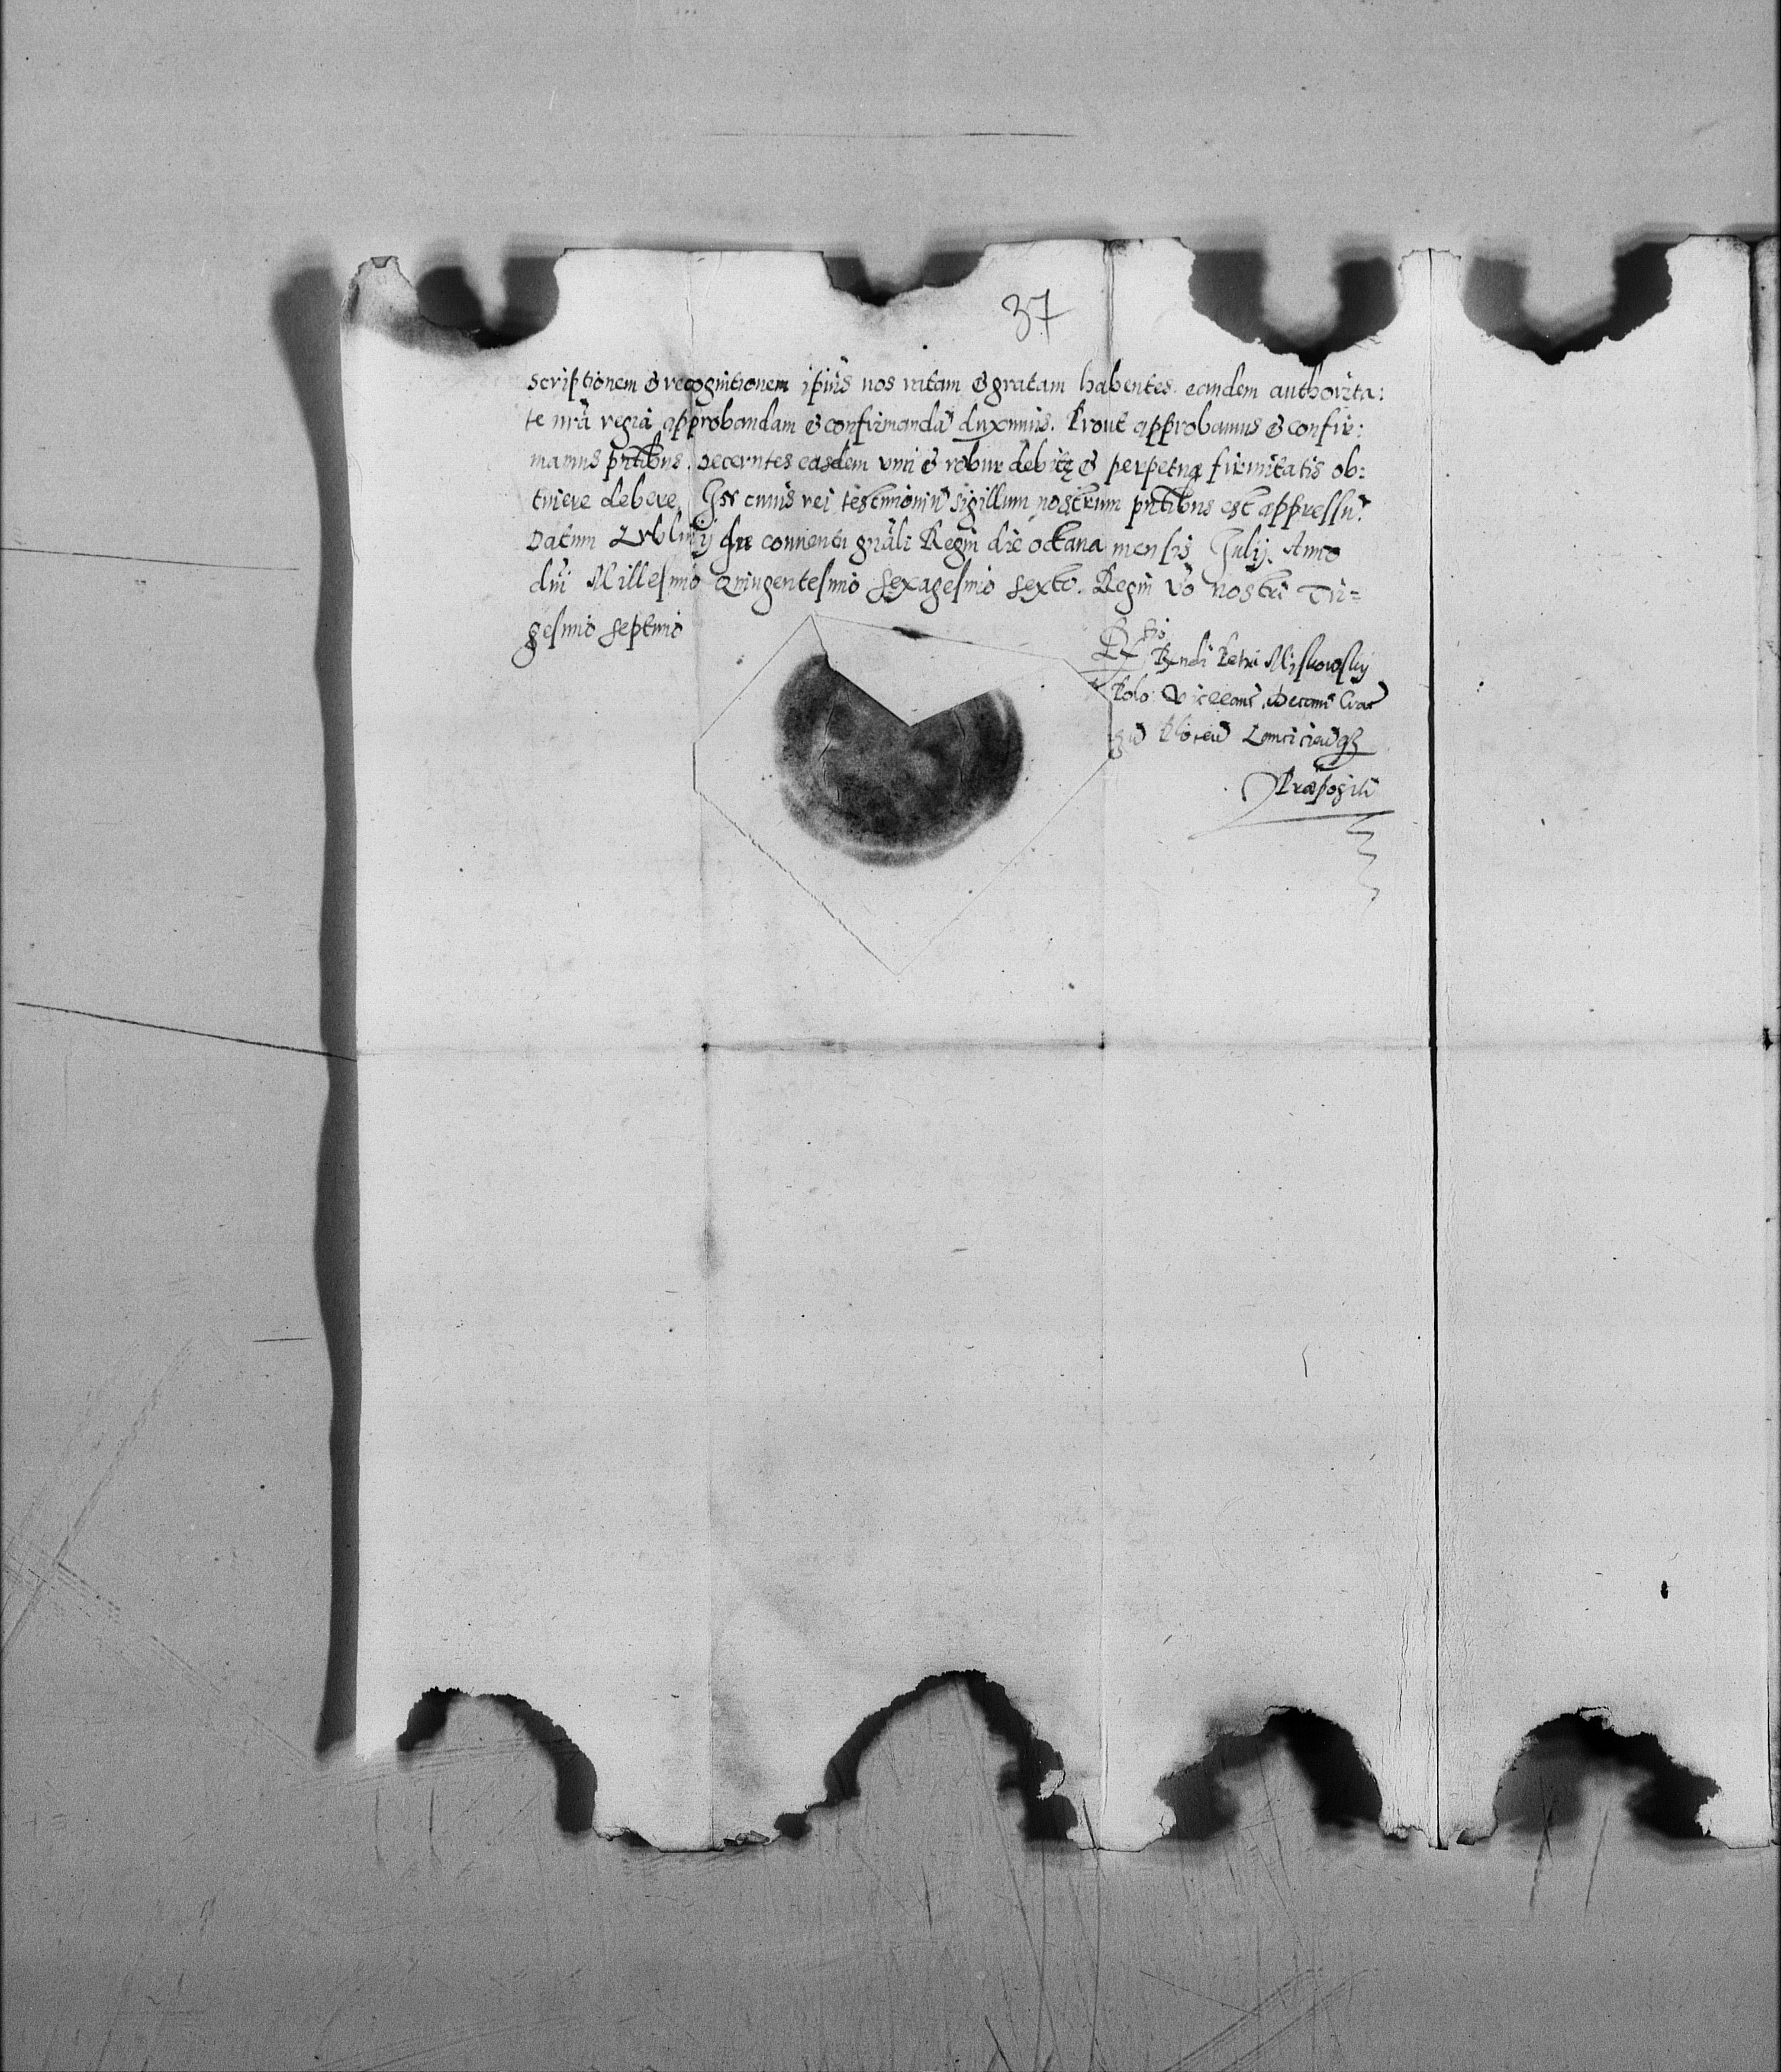 37
scriptionem & recognitionem ipius nos ratam & gratam habentes eandem authorita:
te nrã regia approbandam & confirmandã duximus. Prout approbamus & confir:
mamus pñtibus. Decerntes easdem vim & robur debitę & perpetuæ firmitatis ob:
tinere debere. In cuius rei testimoniũ sigillum nostrum pñtibus est appressũ.
Datum Lublinij In conuentu gnãli Regñi die octaua mensis Julij. Anno
dñi Millesimo Quingentesimo Sexagesimo Sexto. Regñi Vo nostri Tri=
gesimo septimo
Rltio
Rxndi Petri Miskowskij
Vicecanc Decani Crac
Lanciciens̃ qz
Præpositi